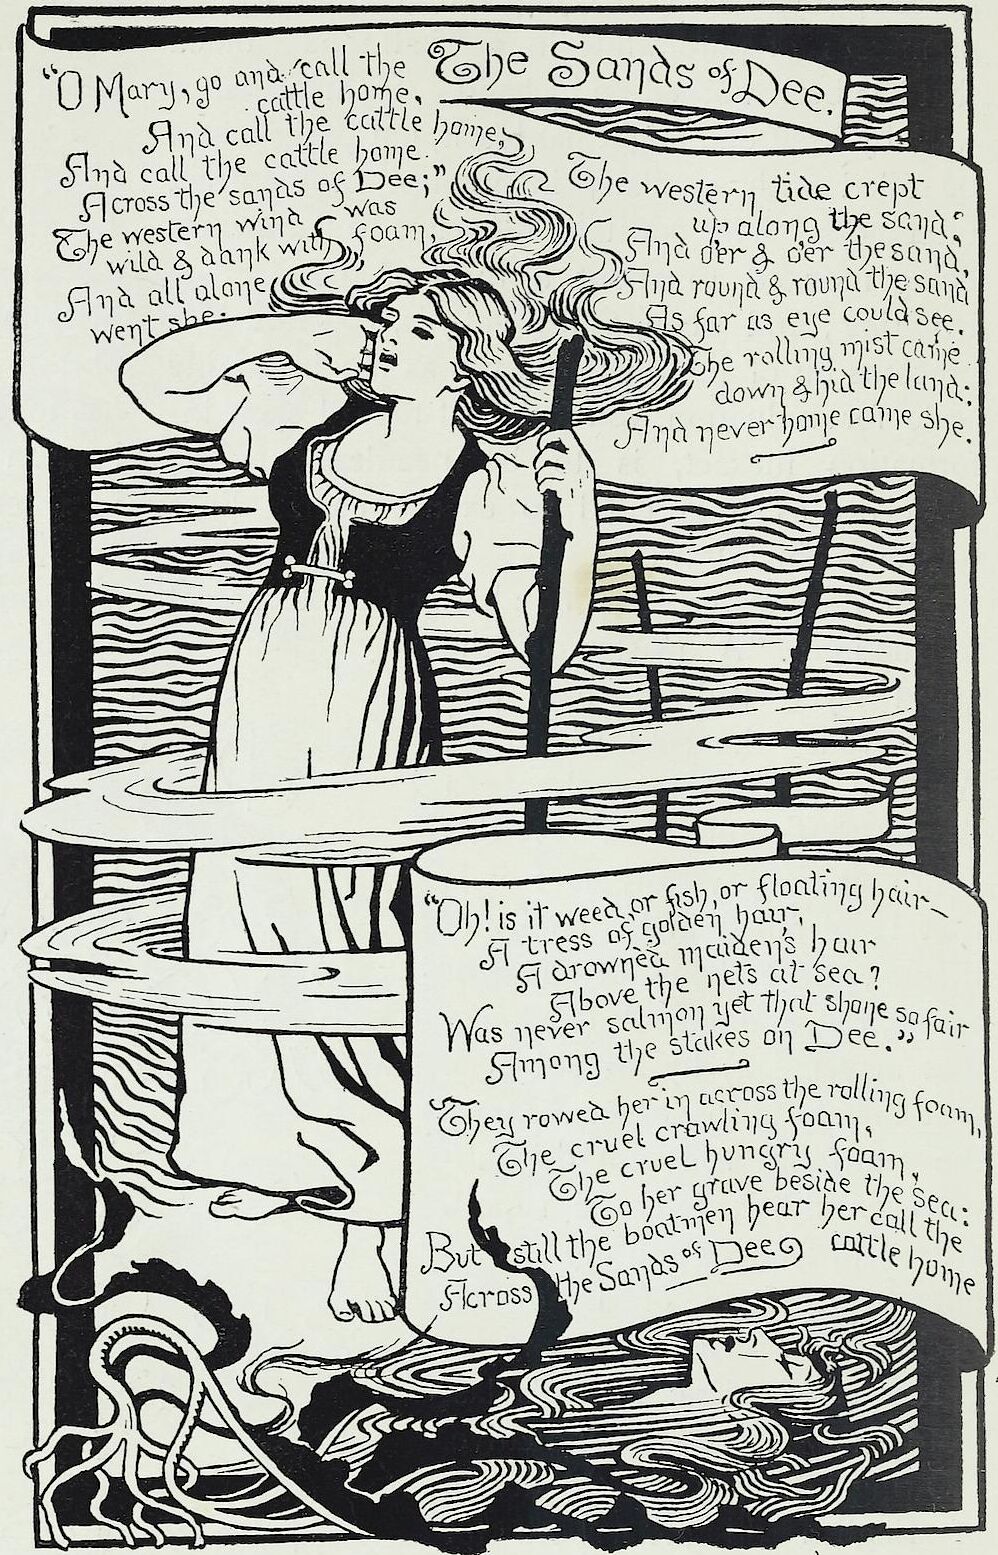 The Sands of Dee.
"O Mary, go and call the
cattle home,
And call the cattle home,
And call the cattle home.
Across the sands of Dee;"
The western wind was
wild & dank with foam,
And all alone
went she.
The western tide crept
up along the sand;
And o'er & o'er the sand,
And round & round the sand
As far as eye could see.
The rolling mist came
down & hid the land:
And never home came she.
"Oh! is it weed, or fish, or floating hair—
A tress of golden hair,
A drownèd maiden's hair
Above the nets at sea?
Was never salmon yet that shone so fair
Among the stakes on Dee."
They rowed her in across the rolling foam,
The cruel crawling foam,
The cruel hungry foam,
To her grave beside the sea:
But still the boatmen hear her call the
cattle home
Across the Sands of Dee